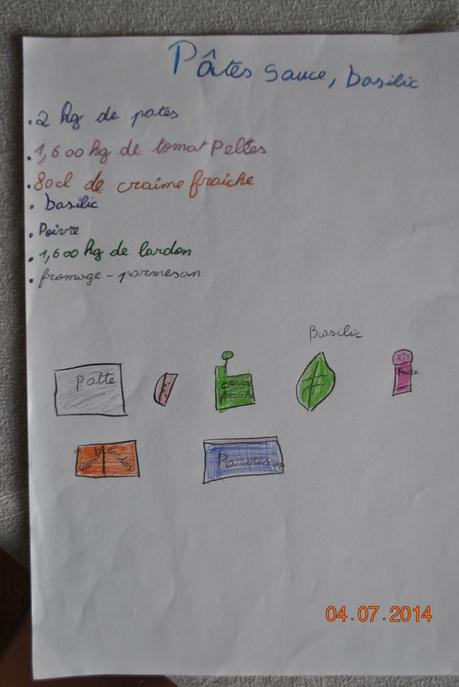 Pâtes sauce, basilic
.2 kg de pates
.1,600kg de tomat Peltes
.80cl de craime fraiche
. basilic
. Poivre
. 1,600 kg de lardon
. fromage - parmesan
Basilic
Patte
fraiche
04.07.2014